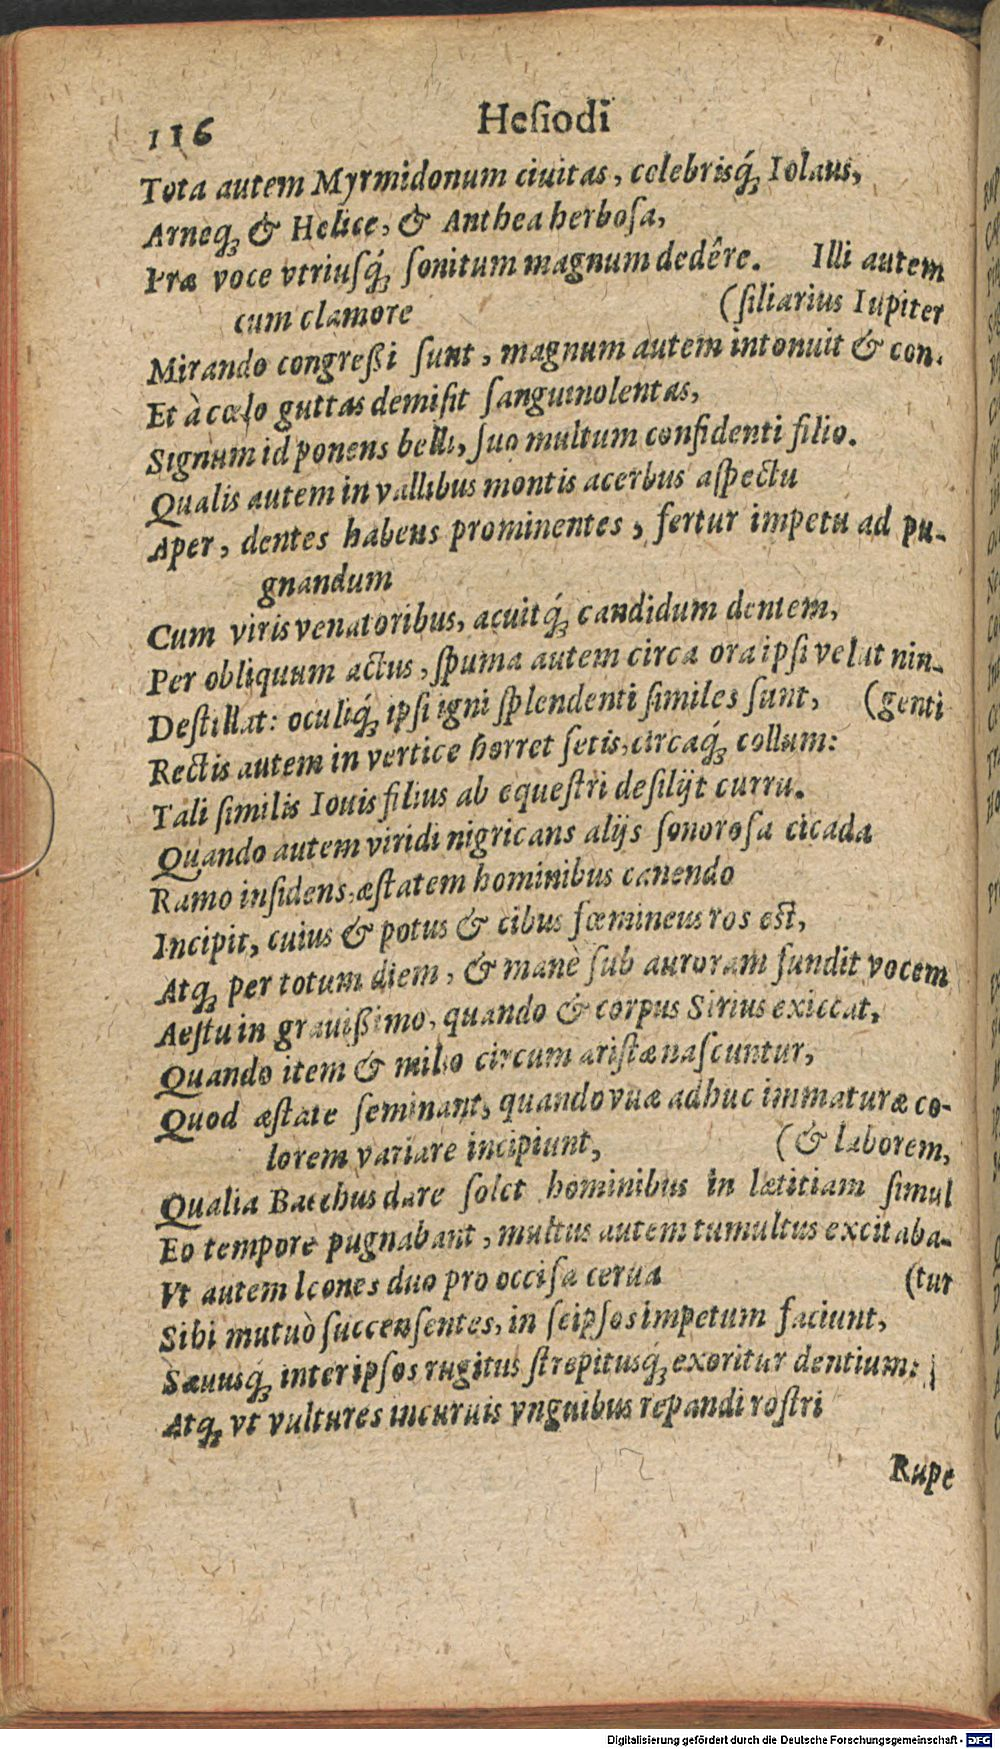 116
Hesiodi
Tota autem Myrmidonum ciuitas, celebrisq́; Iolaus,
Arneq; & Helice, & Anthea herbosa,
Præ voce vtriusq́; sonitum magnum dedêre. Illi autem
cum clamore (siliarius Iupiter
Mirando congreßi sunt, magnum autem intonuit & con-
Et à cœlo guttas demisit sanguinolentas,
Signum id ponens belli, suo multum confidenti filio.
Qualis autem in vallibus montis acerbus aspectu
Aper, dentes habens prominentes, fertur impetu ad pu-
gnandum
Cum viris venatoribus, acuitq́; candidum dentem,
Per obliquum actus, spuma autem circa ora ipsi velut nin-
Destillat: oculiq́; ipsi igni splendenti similes sunt, (genti
Rectis autem in vertice horret setis, circaq́; collum:
Tali similis Iouis filius ab equestri desilijt curru.
Quando autem viridi nigricans alijs sonorosa cicada
Ramo insidens, æstatem hominibus canendo
Incipit, cuius & potus & cibus fœmineus ros est,
Atq; per totum diem, & manè sub auroram fundit vocem
Aestu in grauißimo, quando & corpus Sirius exiccat,
Quando item & milio circum aristæ nascuntur,
Quod æstate seminant, quando vuæ adhuc immaturæ co-
lorem variare incipiunt, (& laborem,
Qualia Bacchus dare solet hominibus in lætitiam simul
Eo tempore pugnabant, multus autem tumultus excitaba-
Vt autem leones duo pro occisa cerua (tur
Sibi mutuò succensentes, in seipsos impetum faciunt,
Sæuusq́; inter ipsos rugitus strepitusq; exoritur dentium:
Atq; vt vultures incuruis vnguibus repandi rostri
Rupe
Digitalisierung gefördert durch die Deutsche Forschungsgemeinschaft - DFG